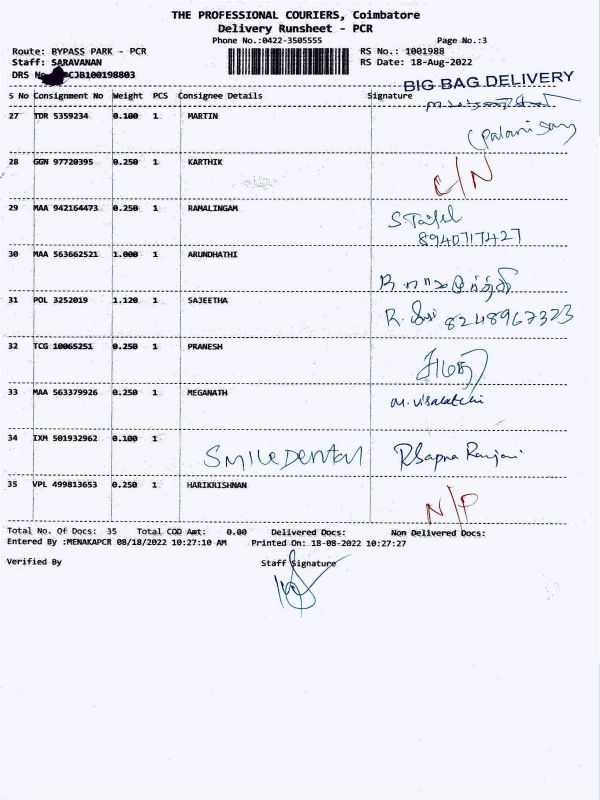 THE PROFESSIONAL COURIERS, Coimbatore
Delivery Runsheet - PCR
Phone No.:0422-3505555 Page No.:3
Route: BYPASS PARK - PCR RS No.: 1001988
Staff: SARAVANAN RS Date: 18-Aug-2022
DRS CJB100198803
BIG BAG DELIVERY
S No Consignment No Weight PCS Consignee Details Signature
27 TDR 5359234 0.100 1 MARTIN
(Palani Samy
28 GGN 97720395 0.250 1 KARTHIK C/N
29 MAA 942164473 0.250 1 RAMALINGAM
8940717427
30 MAA 563662521 1.000 1 ARUNDHATHI
31 POL 3252019 1.120 1 SAJEETHA R. 8248967323
32 TCG 10065251 0.250 1 PRANESH
33 MAA 563379926 0.250 1 MEGANATH M. Visalatchi
34 IXM 501932962 0.100 1
Smile Dental RSapna Ranjani
35 VPL 499813653 0.250 1 HARIKRISHNAN N/P
Total No. Of Docs: 35 Total COD Amt: 0.00 Delivered Docs: Non Delivered Docs:
Entered By :MENAKAPCR 08/18/2022 10:27:10 AM Printed On: 18-08-2022 10:27:27
Verified By Staff Signature